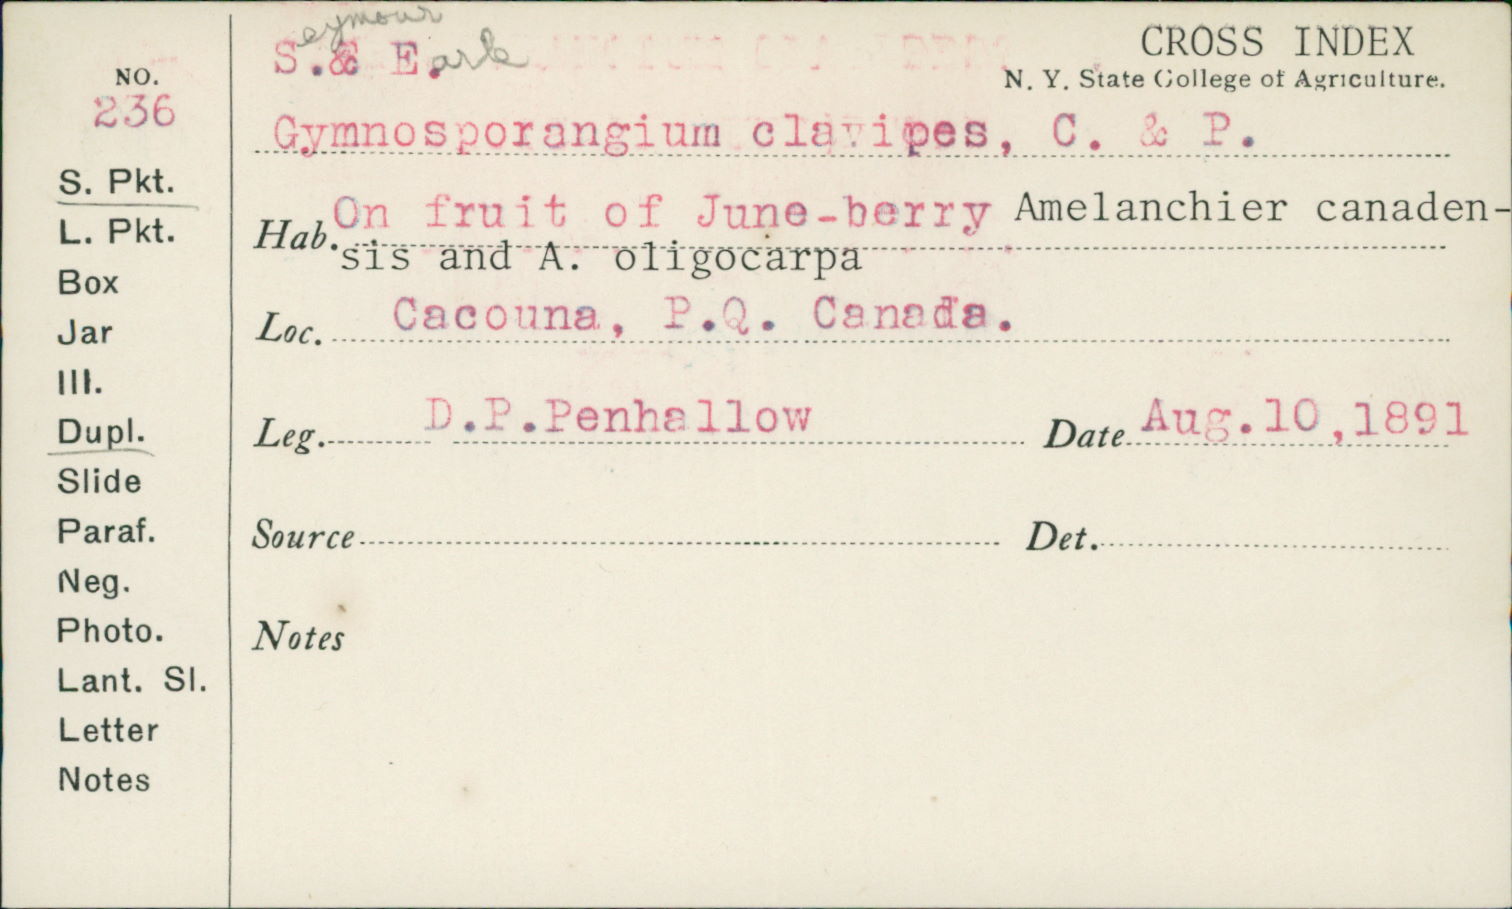 eymour
S.& E.arle
CROSS INDEX
N. Y. State College of Agriculture.
NO.
236
Gymnosporangium clavipes, C. & P.
S. Pkt.
L. Pkt.
Box
Jar
Ill.
Dupl.
Slide
Paraf.
Neg.
Photo.
Lant. Sl.
Letter
Notes
Hab. On fruit of June-berry Amelanchier canaden-
sis and A. oligocarpa
Loc. Cacouna, P.Q. Canada.
Leg. D.P.Penhallow Date Aug.10,1891
Source Det.
Notes